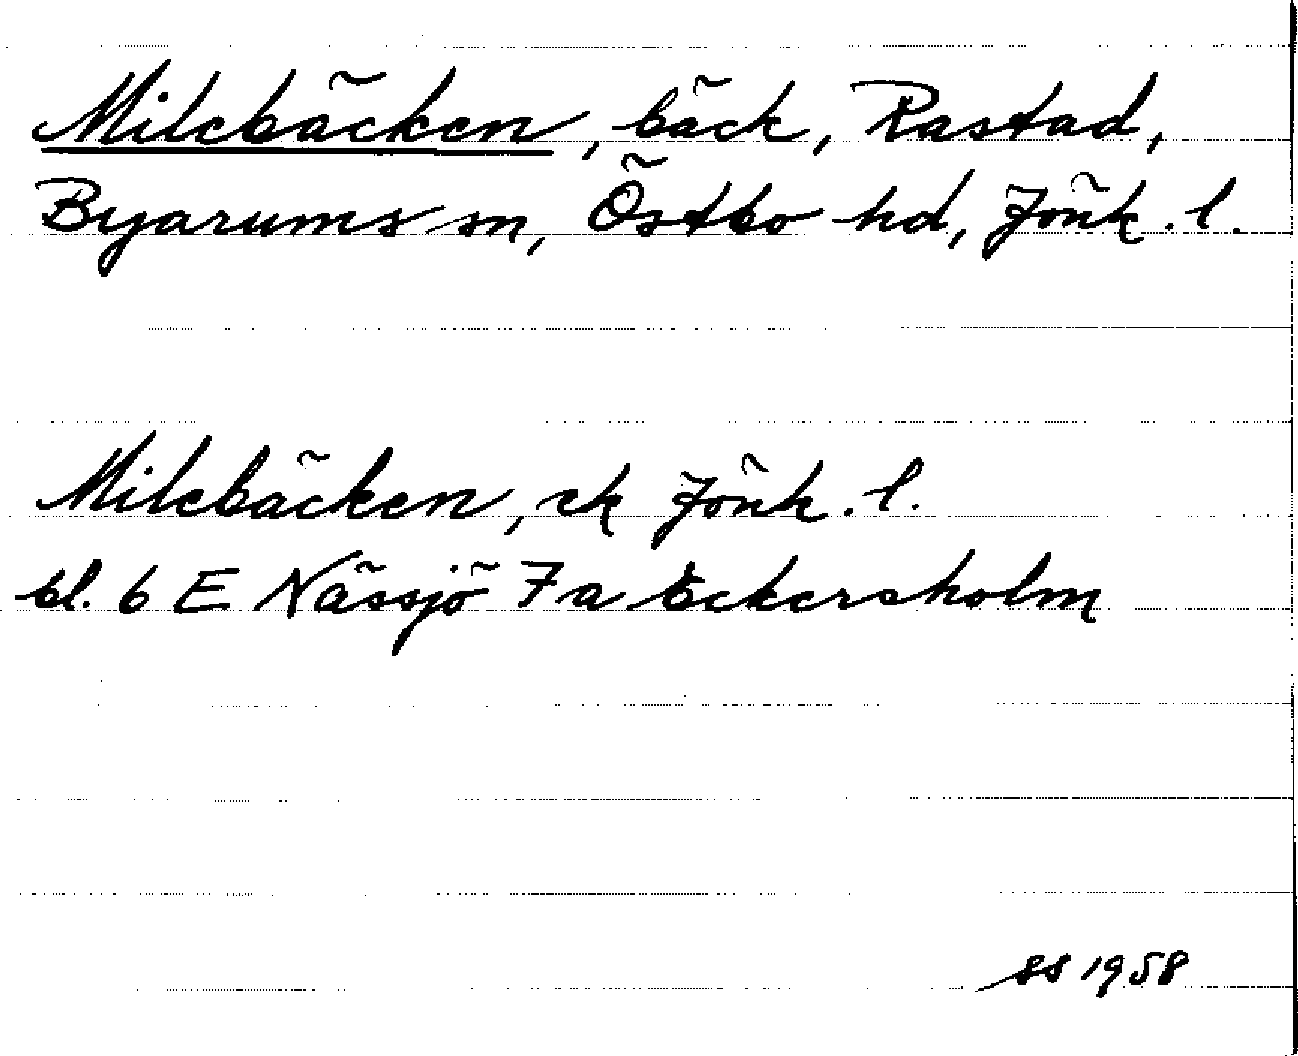 Milebäcken, bäck, Rastad,
Byarums sn, Östbo hd, Jönk. l.
Milebäcken, ek Jönk. l.
bl. 6 E Nässjö 7 a Eckersholm
SS 1958